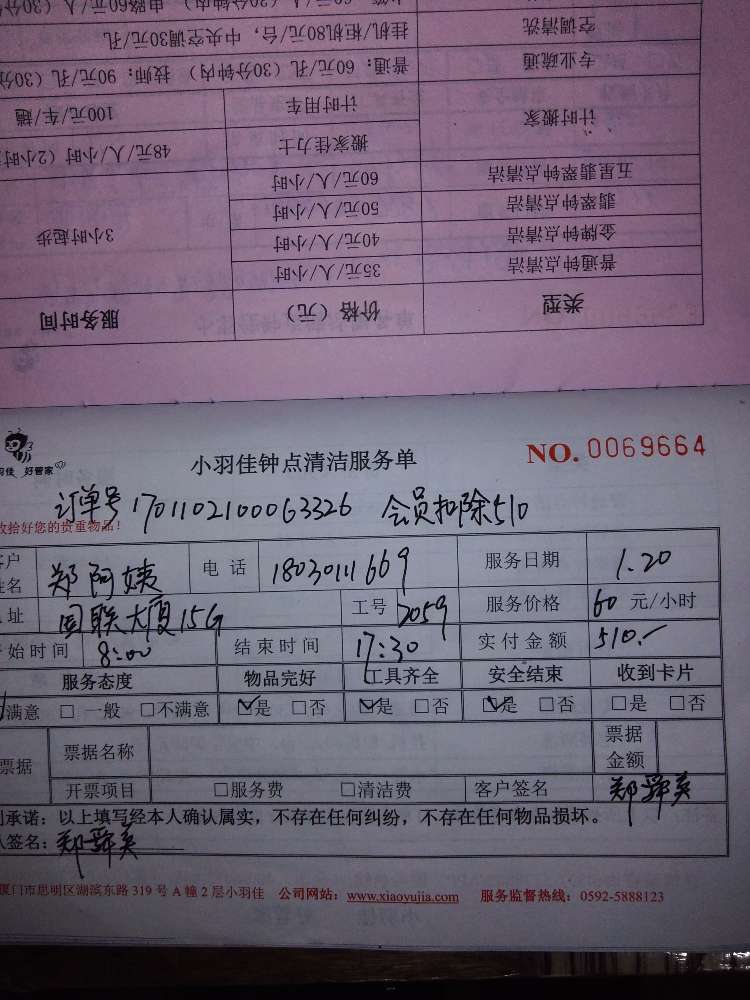 电路60元/人（30分
空调清洗 挂机/柜机80元/台，中央空调30元/孔
专业疏通 普通：60元/孔（30分钟内） 技师：90元/孔（30分
计时搬家 计时用车 100元/车/趟
搬家佳力士 48元/人/小时（2小时
五星翡翠钟点清洁 60元/人/小时
翡翠钟点清洁 50元/人/小时 3小时起步
金牌钟点清洁 40元/人/小时
普通钟点清洁 35元/人/小时
类型 价格（元） 服务时间
羽佳 好管家
小羽佳钟点清洁服务单 NO. 0069664
订单号 1701102100063326 会员扣除510
收拾好您的贵重物品！
客户姓名 郑阿姨 电话 18030111669 服务日期 1.20
址 国联大厦15G 工号 2059 服务价格 60 元/小时
开始时间 8:00 结束时间 17:30 实付金额 510.-
服务态度 物品完好 工具齐全 安全结束 收到卡片
满意 □ 一般 □不满意 ☑是 □否 ☑是 □否 ☑是 □否 □是 □否
票据 票据名称 票据金额
开票项目 □服务费 □清洁费 客户签名 郑舜英
承诺：以上填写经本人确认属实，不存在任何纠纷，不存在任何物品损坏。
人签名：郑舜英
厦门市思明区湖滨东路 319 号 A 幢 2 层小羽佳 公司网站：www.xiaoyujia.com 服务监督热线：0592-5888123